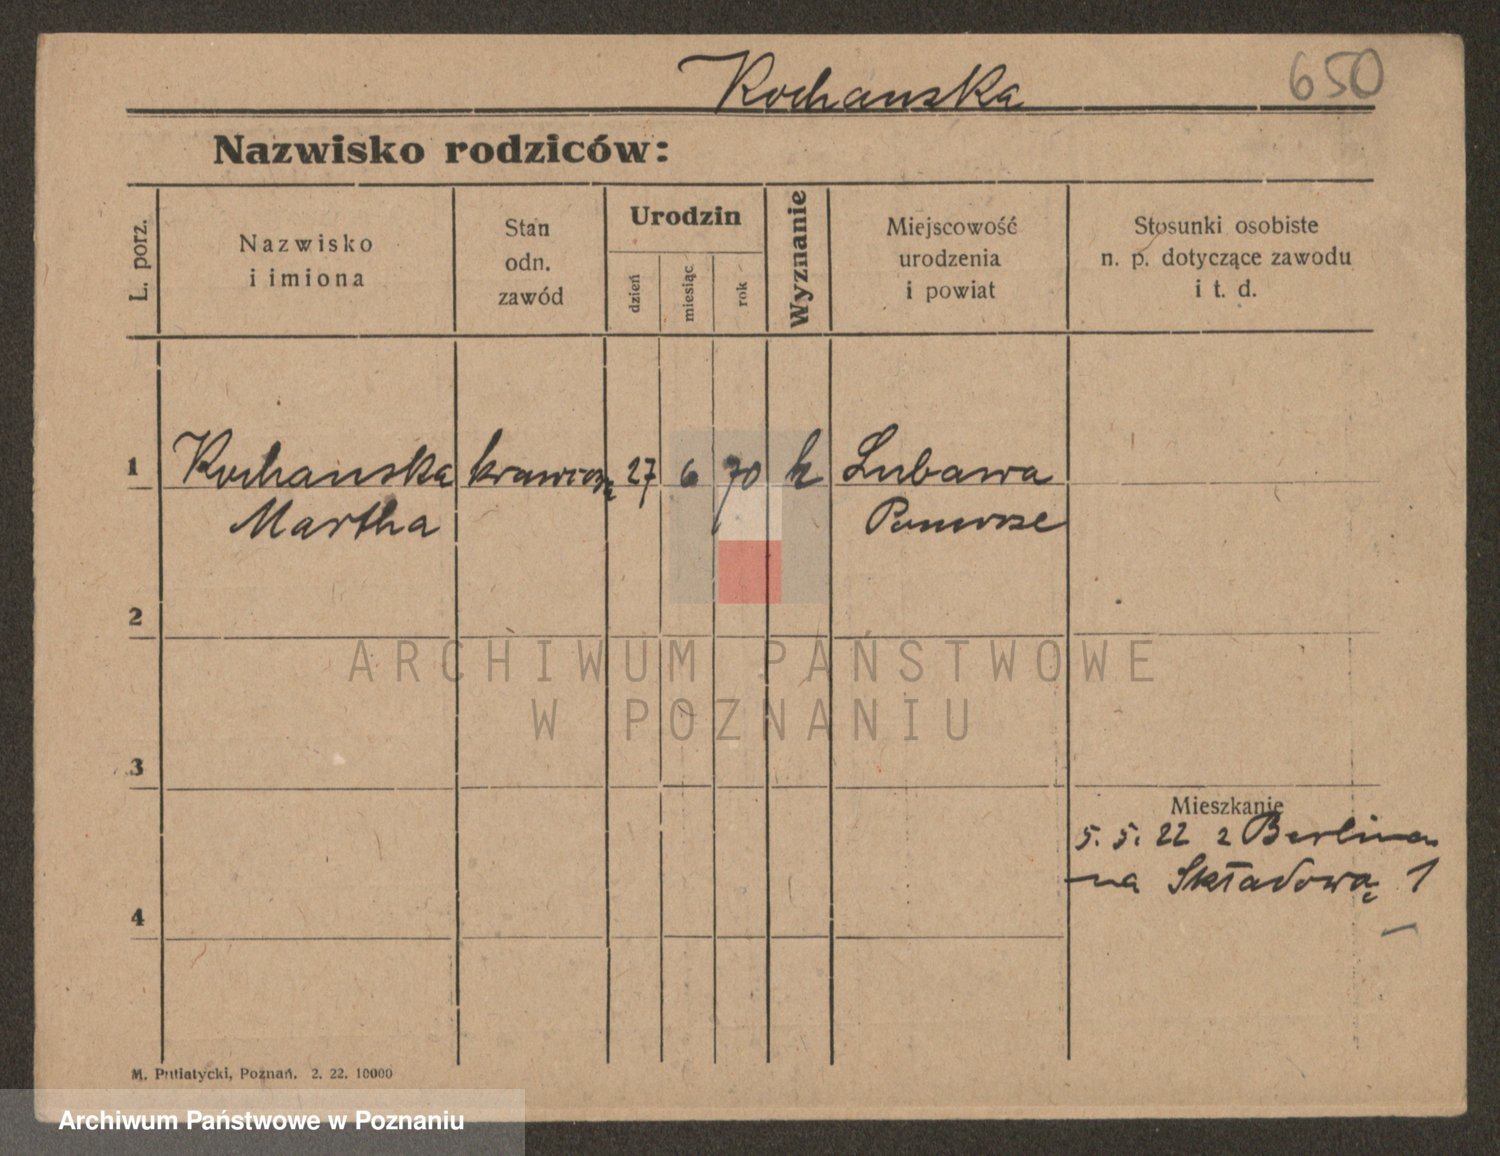 Kochanska
650
Nazwisko rodziców:
L. porz.
Nazwisko
i imiona
Stan
odn.
zawód
Urodzin
dzień
miesiąc
rok
Wyznanie
Miejscowość
urodzenia
i powiat
Stosunki osobiste
n. p. dotyczące zawodu
i t. d.
1 Kochanska 27 6 70 k Lubawa
Martha Pomorze
2
ARCHIWUM PAŃSTWOWE
W POZNANIU
3
Mieszkanie
5. 5. 22 z Berlina
na Składową 1
4
M. Putiatycki, Poznań. 2. 22. 10000
Archiwum Państwowe w Poznaniu